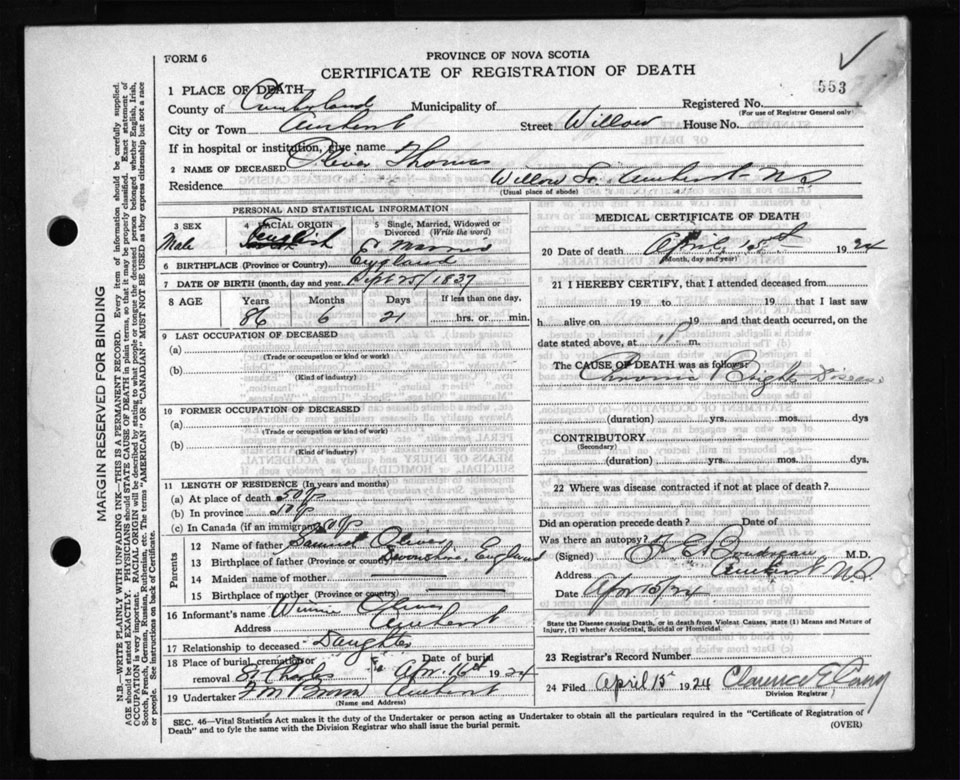 FORM 6
PROVINCE OF NOVA SCOTIA
CERTIFICATE OF REGISTRATION OF DEATH
553
1 PLACE OF DEATH
County of Cumberland Municipality of Registered No.
(For use of Registrar General only)
City or Town Amherst Street Willow House No.
If in hospital or institution, give name
2 NAME OF DECEASED Oliver Thomas
Residence Willow St. Amherst NS
(Usual place of abode)
PERSONAL AND STATISTICAL INFORMATION
3 SEX 4 RACIAL ORIGIN 5 Single, Married, Widowed or Divorced (Write the word)
Male English
6 BIRTHPLACE (Province or Country) England
7 DATE OF BIRTH (month, day and year) Sept 25/1837
8 AGE Years Months Days If less than one day,
86 6 21 hrs. or min.
9 LAST OCCUPATION OF DECEASED
(a)
(Trade or occupation or kind or work)
(b)
(Kind of industry)
10 FORMER OCCUPATION OF DECEASED
(a)
(Trade or occupation or kind of work)
(b)
(Kind of industry)
11 LENGTH OF RESIDENCE (In years and months)
(a) At place of death 50 y
(b) In province 50 y
(c) In Canada (if an immigrant) 50 y
Parents
12 Name of father Samuel Oliver
13 Birthplace of father (Province or country) Devonshire, England
14 Maiden name of mother
15 Birthplace of mother (Province or country)
16 Informant's name Winnie Oliver
Address Amherst
17 Relationship to deceased Daughter
18 Place of burial, cremation or removal Date of burial
St Charles Apr. 16 1924
19 Undertaker Amherst
(Name and Address)
MEDICAL CERTIFICATE OF DEATH
20 DATE OF DEATH April 15th 1924
(Month, day and year)
21 I HEREBY CERTIFY, that I attended deceased from
19 to 19 that I last saw
h alive on 19 and that death occurred, on
date stated above, at m.
The CAUSE OF DEATH was as follows:
Chronic Brights Disease
(duration) yrs. mos. dys
CONTRIBUTORY
(Secondary)
(duration) yrs. mos. dys.
22 Where was disease contracted if not at place of death?
Did an operation precede death? Date of
Was there an autopsy?
(Signed) Boudreau M.D.
Address Amherst NS.
Date Apr 15/24
State the Disease causing Death, or in death from Violent Causes, state (1) Means and Nature of Injury, (2) whether Accidental, Suicidal or Homicidal.
23 Registrar's Record Number
24 Filed April 15 1924 Clarence
Division Registrar
SEC. 46—Vital Statistics Act makes it the duty of the Undertaker or person acting as Undertaker to obtain all the particulars required in the "Certificate of Registration of
Death" and to fyle the same with the Division Registrar who shall issue the burial permit.
(OVER)
MARGIN RESERVED FOR BINDING
N.B.—WRITE PLAINLY WITH UNFADING INK—THIS IS A PERMANENT RECORD. Every item of information should be carefully supplied.
AGE should be stated EXACTLY. PHYSICIANS should STATE CAUSE OF DEATH in plain terms, so that it may be properly classified. Exact statement of
OCCUPATION is very important. RACIAL ORIGIN will be described by stating to what people or tongue the deceased person belonged whether English, Irish,
Scotch, French, German, Russian, Ruthenian, etc. The terms "AMERICAN" OR "CANADIAN" MUST NOT BE USED as they express citizenship but not a race
or people. See instructions on back of Certificate.